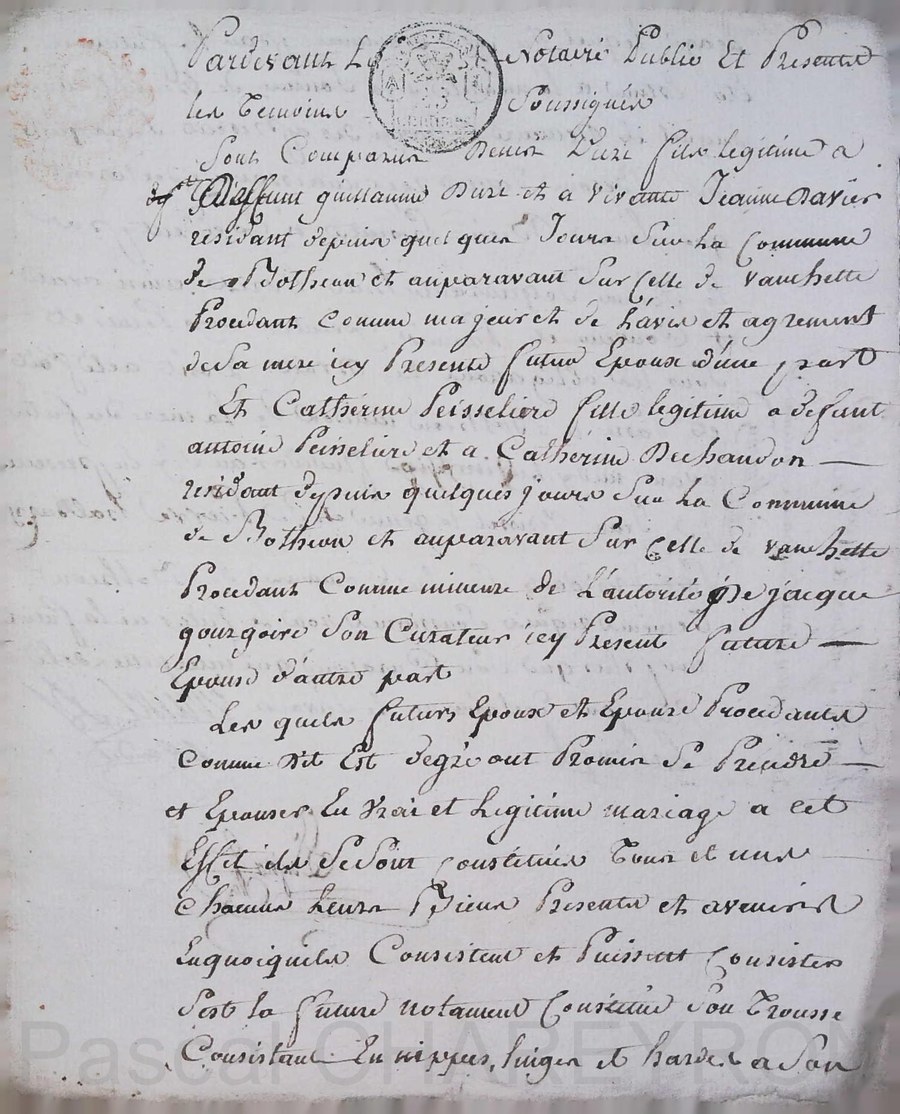 Pardevant Le Notaire Public Et Presents
les Temoins Soussignés
Sont Comparus Denis Duré fils legitime a
Deffunt guillaume Duré et a vivante Jeanne Davier
residant depuis quelques Jours sur La Commune
de Botheon et auparavant Sur Celle de Vauchette
Procedant Comme majeur et de L'avis et agrement
de Sa mere icy Presente futur Epoux d'une part
Et Catherine Peisseliere fille legitime a defunt
antoine Peisseliere et a Catherine Dechandon
residant depuis quelques jours Sur La Commune
de Botheon et auparavant Sur Celle de Vauchette
Procedant Comme mineure de L'autorité De jacque
gourgoire Son Curateur icy Present future
Epouse d'autre part
Les quels futurs Epoux et Epouse Procedants
Comme dit Est degré ont Promis Se Prendre
et Epouser En Vrai et Legitime mariage a cet
Effet ils Se Sont Constitués Tous et uns
Chacuns Leurs Biens Presents et avenirs
Enquoiquils Consistent et Puissent Consister
Sest la future notament Constitué Son Trousse
Consistant En nippes, linges et hardes a Son
Pascal CHAREYRON